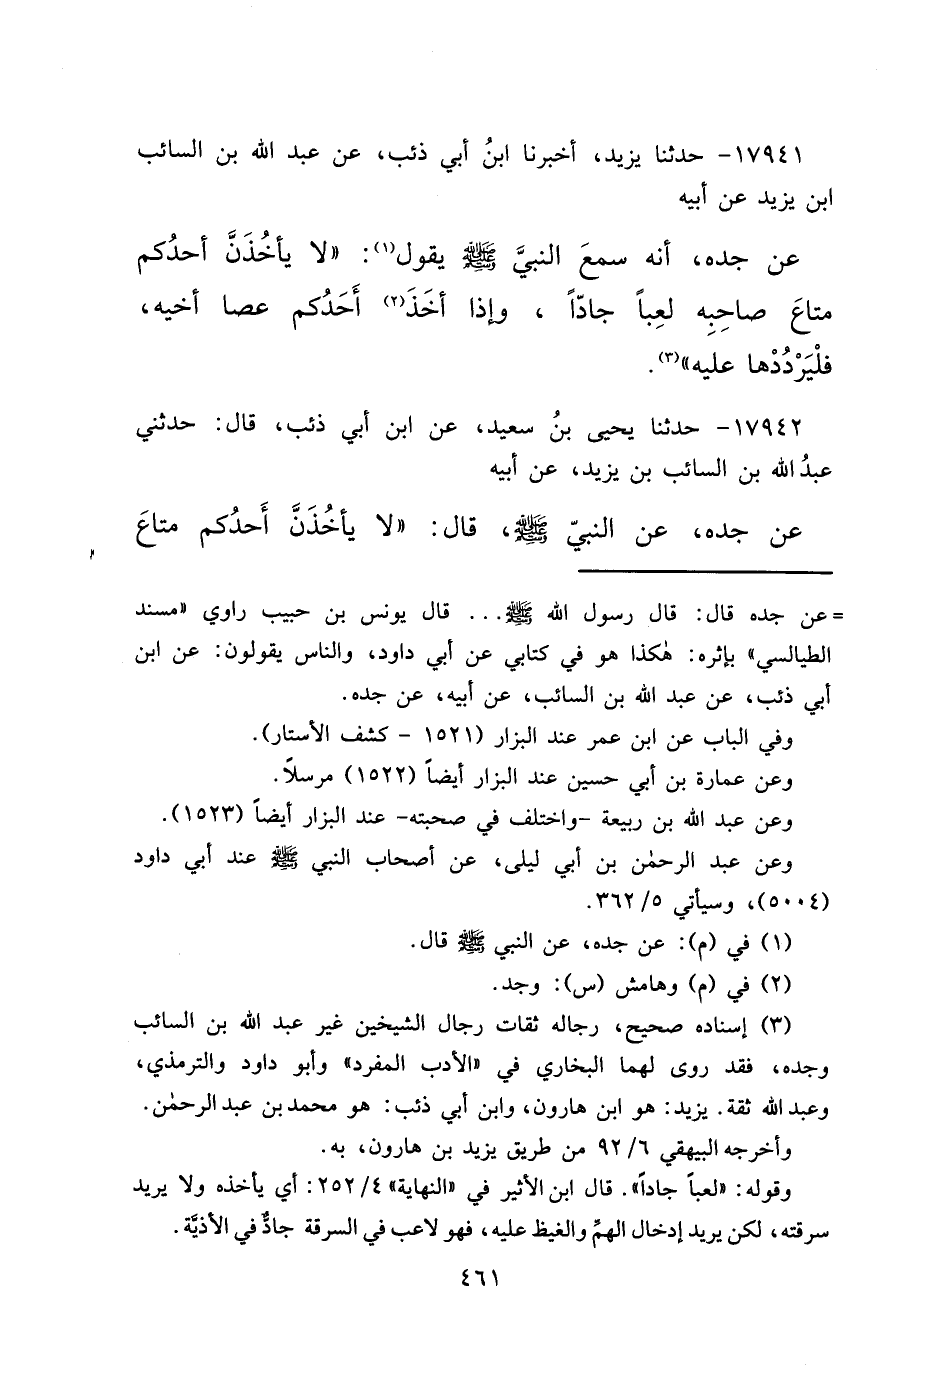 ١٧٩٤١- حدثنا يزيد، أخبرنا ابنُ أبي ذئب، عن عبد الله بن السائب
ابن يزيد عن أبيه
عن جده، أنه سمعَ النبيَّ ﷺ يقول(١): «لا يأخُذَنَّ أحدُكم
متاعَ صاحِبِه لعِباً جادّاً ، وإذا أخَذَ(٢) أَحَدُكم عصا أخيه،
فلْيَرْدُدْها عليه»(٣).
١٧٩٤٢- حدثنا يحيى بنُ سعيد، عن ابن أبي ذئب، قال: حدثني
عبدُ الله بن السائب بن يزيد، عن أبيه
عن جده، عن النبيّ ﷺ، قال: «لا يأخُذَنَّ أَحدُكم متاعَ
=عن جده قال: قال رسول الله ﷺ... قال يونس بن حبيب راوي «مسند
الطيالسي» بإثره: هٰكذا هو في كتابي عن أبي داود، والناس يقولون: عن ابن
أبي ذئب، عن عبد الله بن السائب، عن أبيه، عن جده.
وفي الباب عن ابن عمر عند البزار (١٥٢١ - كشف الأستار).
وعن عمارة بن أبي حسين عند البزار أيضاً (١٥٢٢) مرسلاً.
وعن عبد الله بن ربيعة -واختلف في صحبته- عند البزار أيضاً (١٥٢٣).
وعن عبد الرحمٰن بن أبي ليلى، عن أصحاب النبي ﷺ عند أبي داود
(٥٠٠٤)، وسيأتي ٣٦٢/٥.
(١) في (م): عن جده، عن النبي ﷺ قال.
(٢) في (م) وهامش (س): وجد.
(٣) إسناده صحيح، رجاله ثقات رجال الشيخين غير عبد الله بن السائب
وجده، فقد روى لهما البخاري في «الأدب المفرد» وأبو داود والترمذي،
وعبد الله ثقة. يزيد: هو ابن هارون، وابن أبي ذئب: هو محمد بن عبد الرحمٰن.
وأخرجه البيهقي ٩٢/٦ من طريق يزيد بن هارون، به.
وقوله: «لعباً جاداً». قال ابن الأثير في «النهاية» ٢٥٢/٤: أي يأخذه ولا يريد
سرقته، لكن يريد إدخال الهمِّ والغيظ عليه، فهو لاعب في السرقة جادٌّ في الأذيَّة.
٤٦١